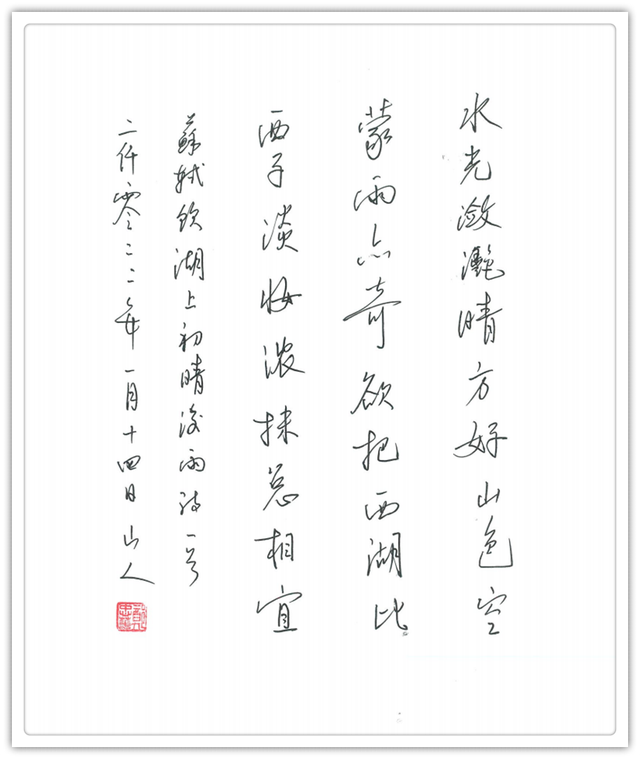 水光潋滟晴方好山色空
蒙雨亦奇欲把西湖比
西子淡妆浓抹总相宜
蘇軾饮湖上初晴後雨诗一首
二仟零二二年一月十四日山人